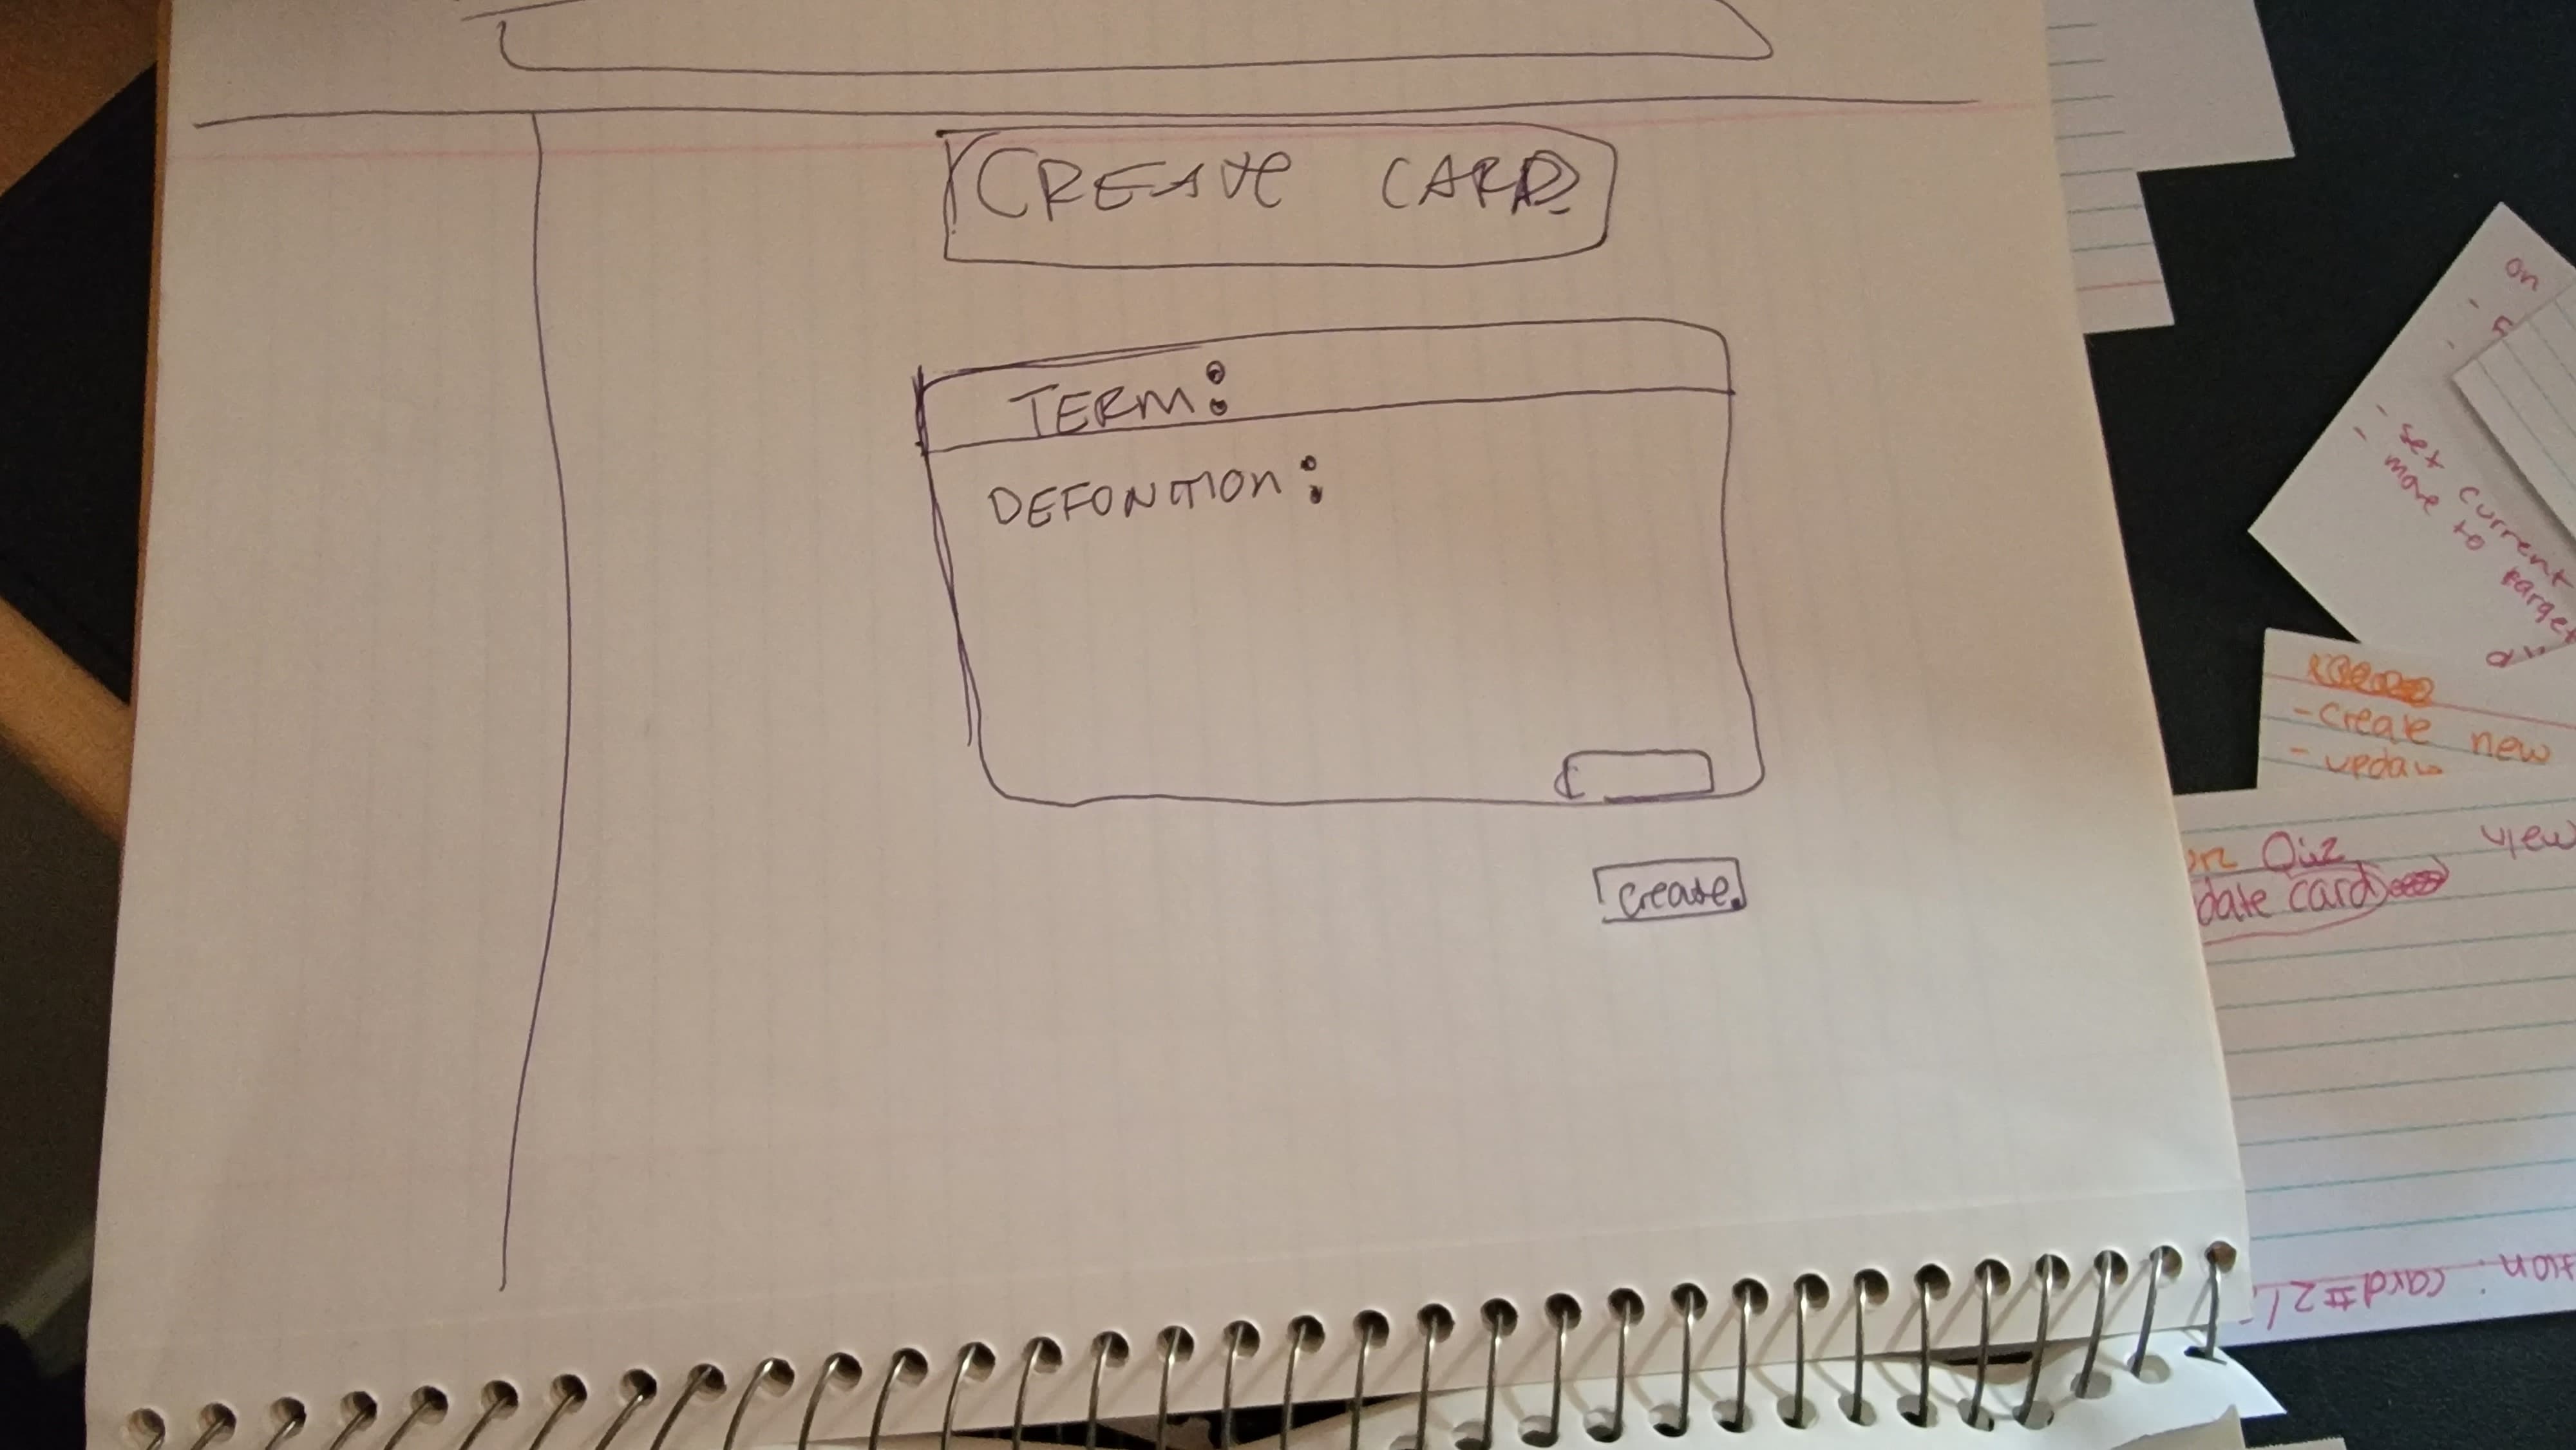 CREATE CARD
TERM:
DEFONITION:
create
on
- set current
- move to target
- create new
- updat
Quiz view
date card
card #2